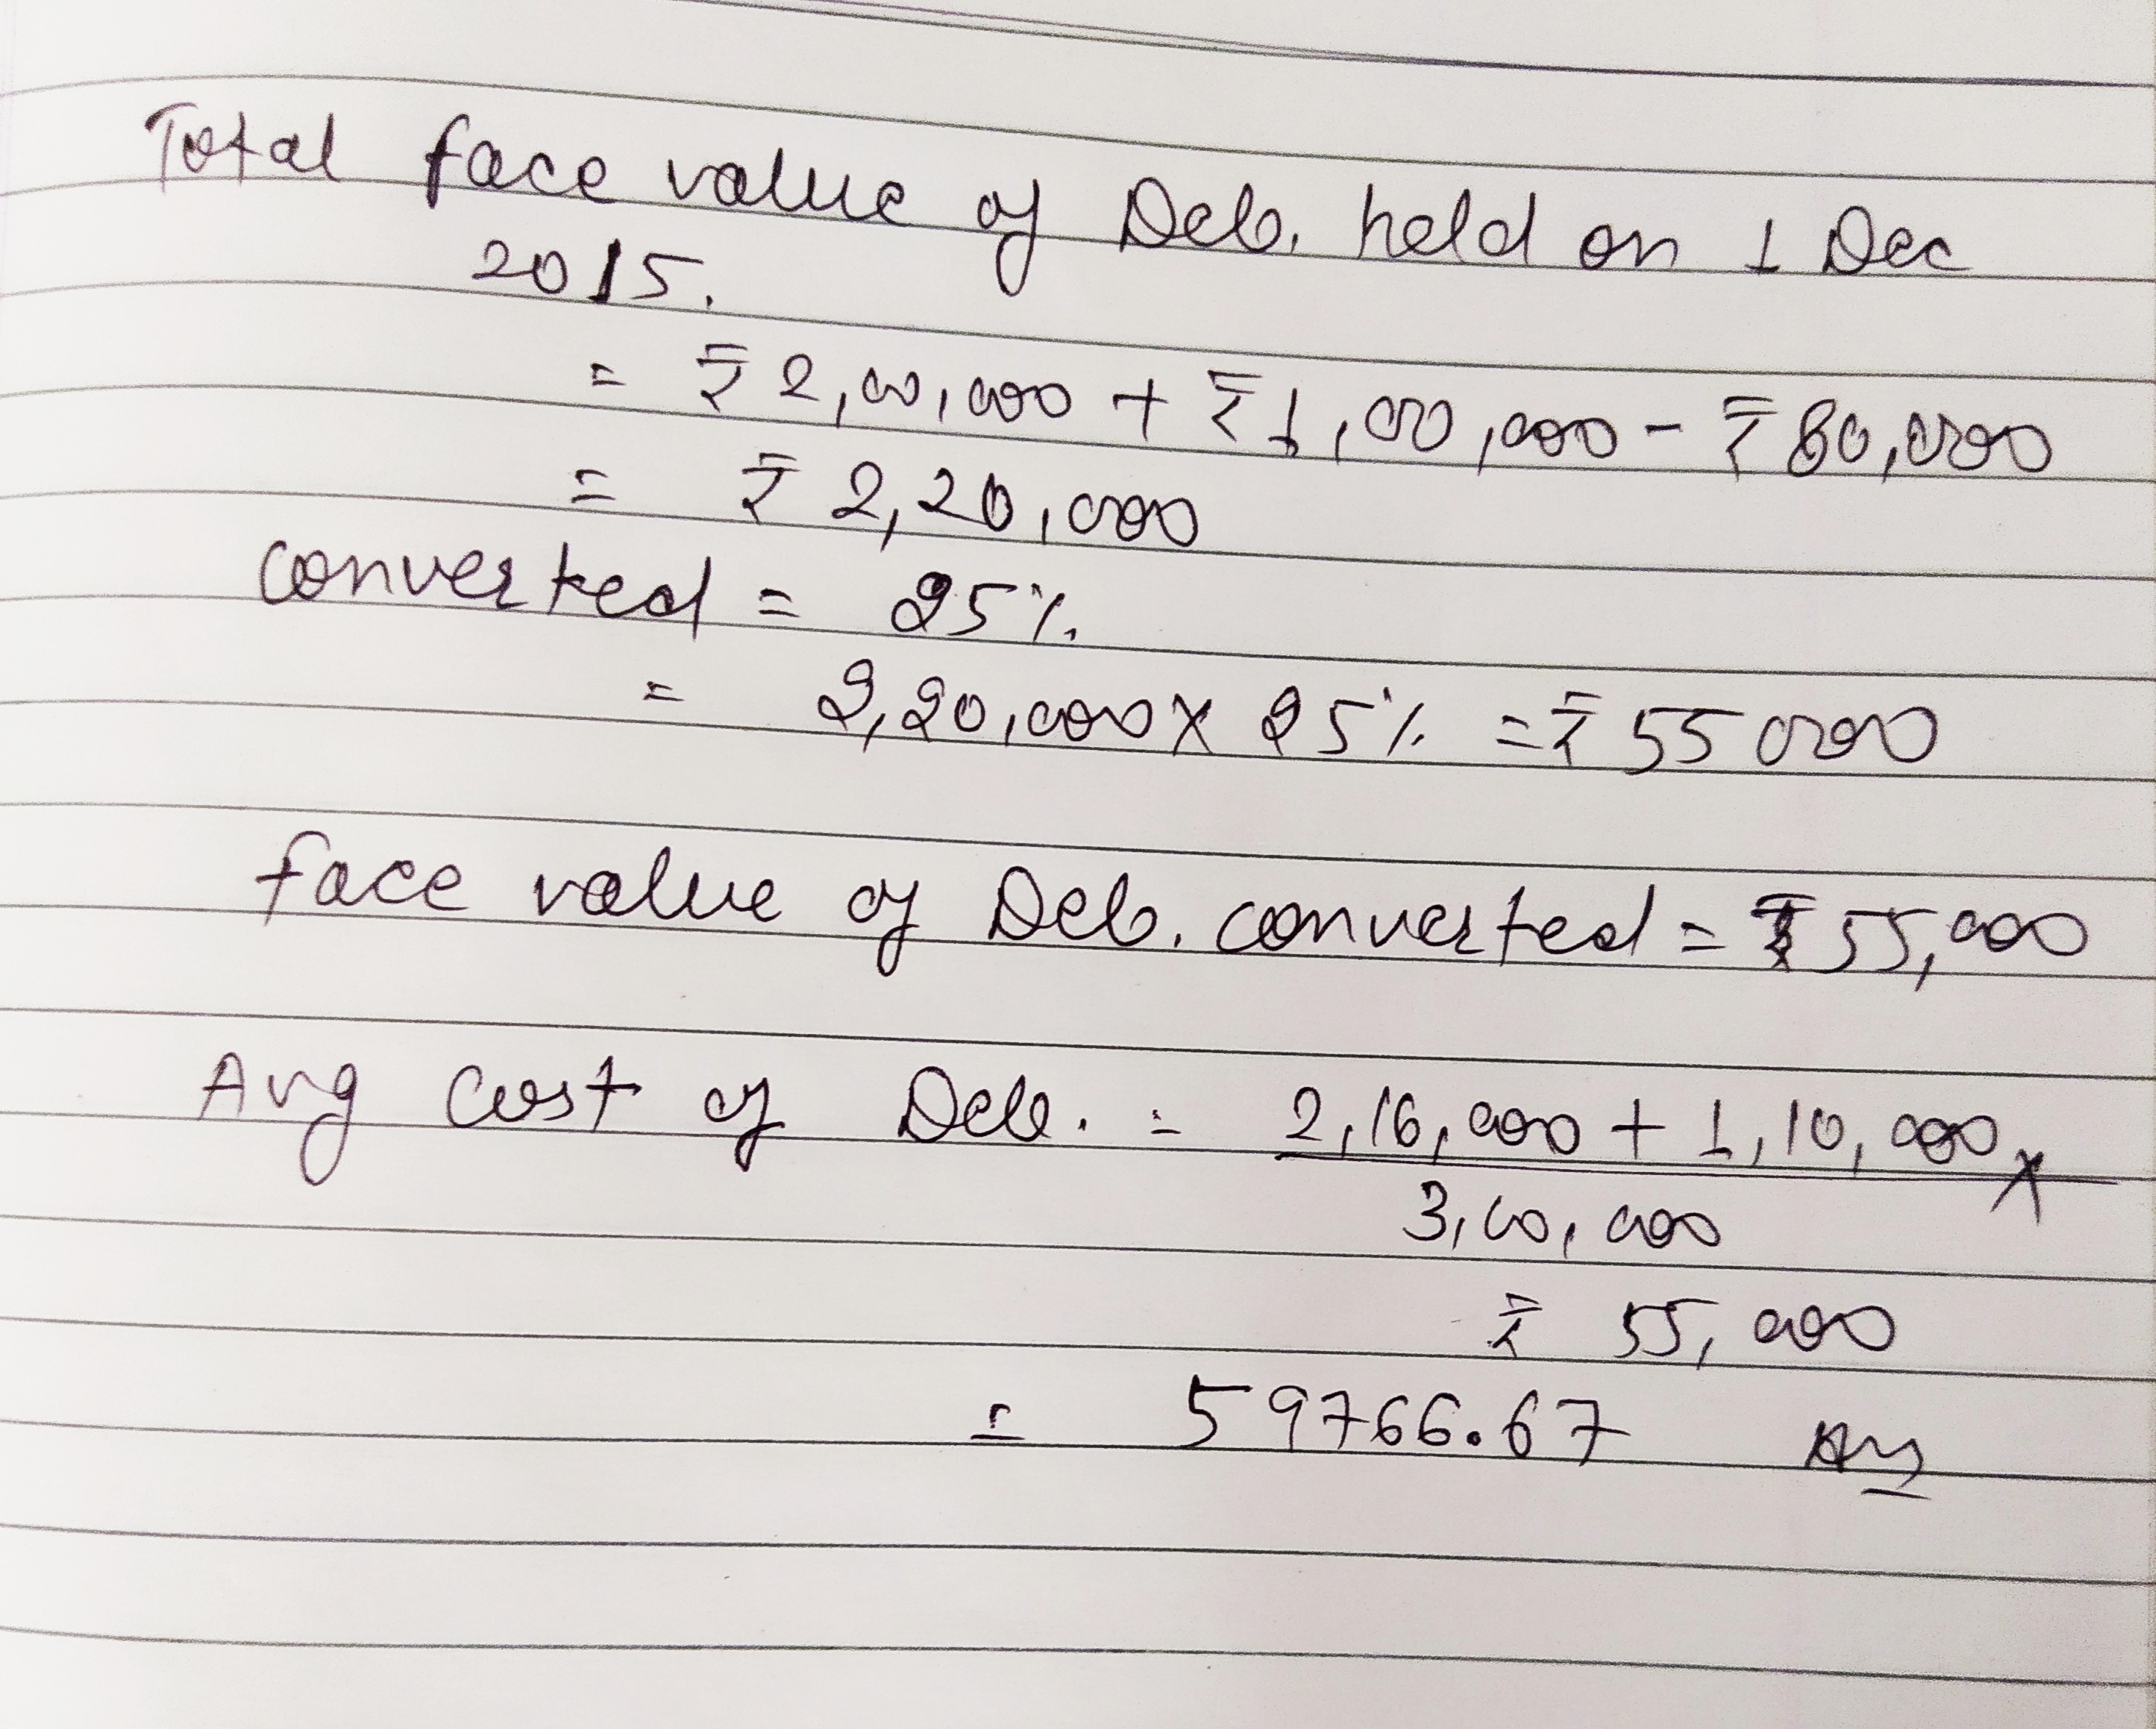 Total face value of Deb. held on 1 Dec
2015.
= ₹ 2,00,000 + ₹ 1,00,000 - ₹ 80,000
= ₹ 2,20,000
converted = 25%
= 2,20,000 x 25% = ₹ 55000
face value of Deb. converted = ₹ 55,000
Avg Cost of Deb. = 2,16,000 + 1,10,000 x
3,00,000
₹ 55,000
= 59766.67 Ans